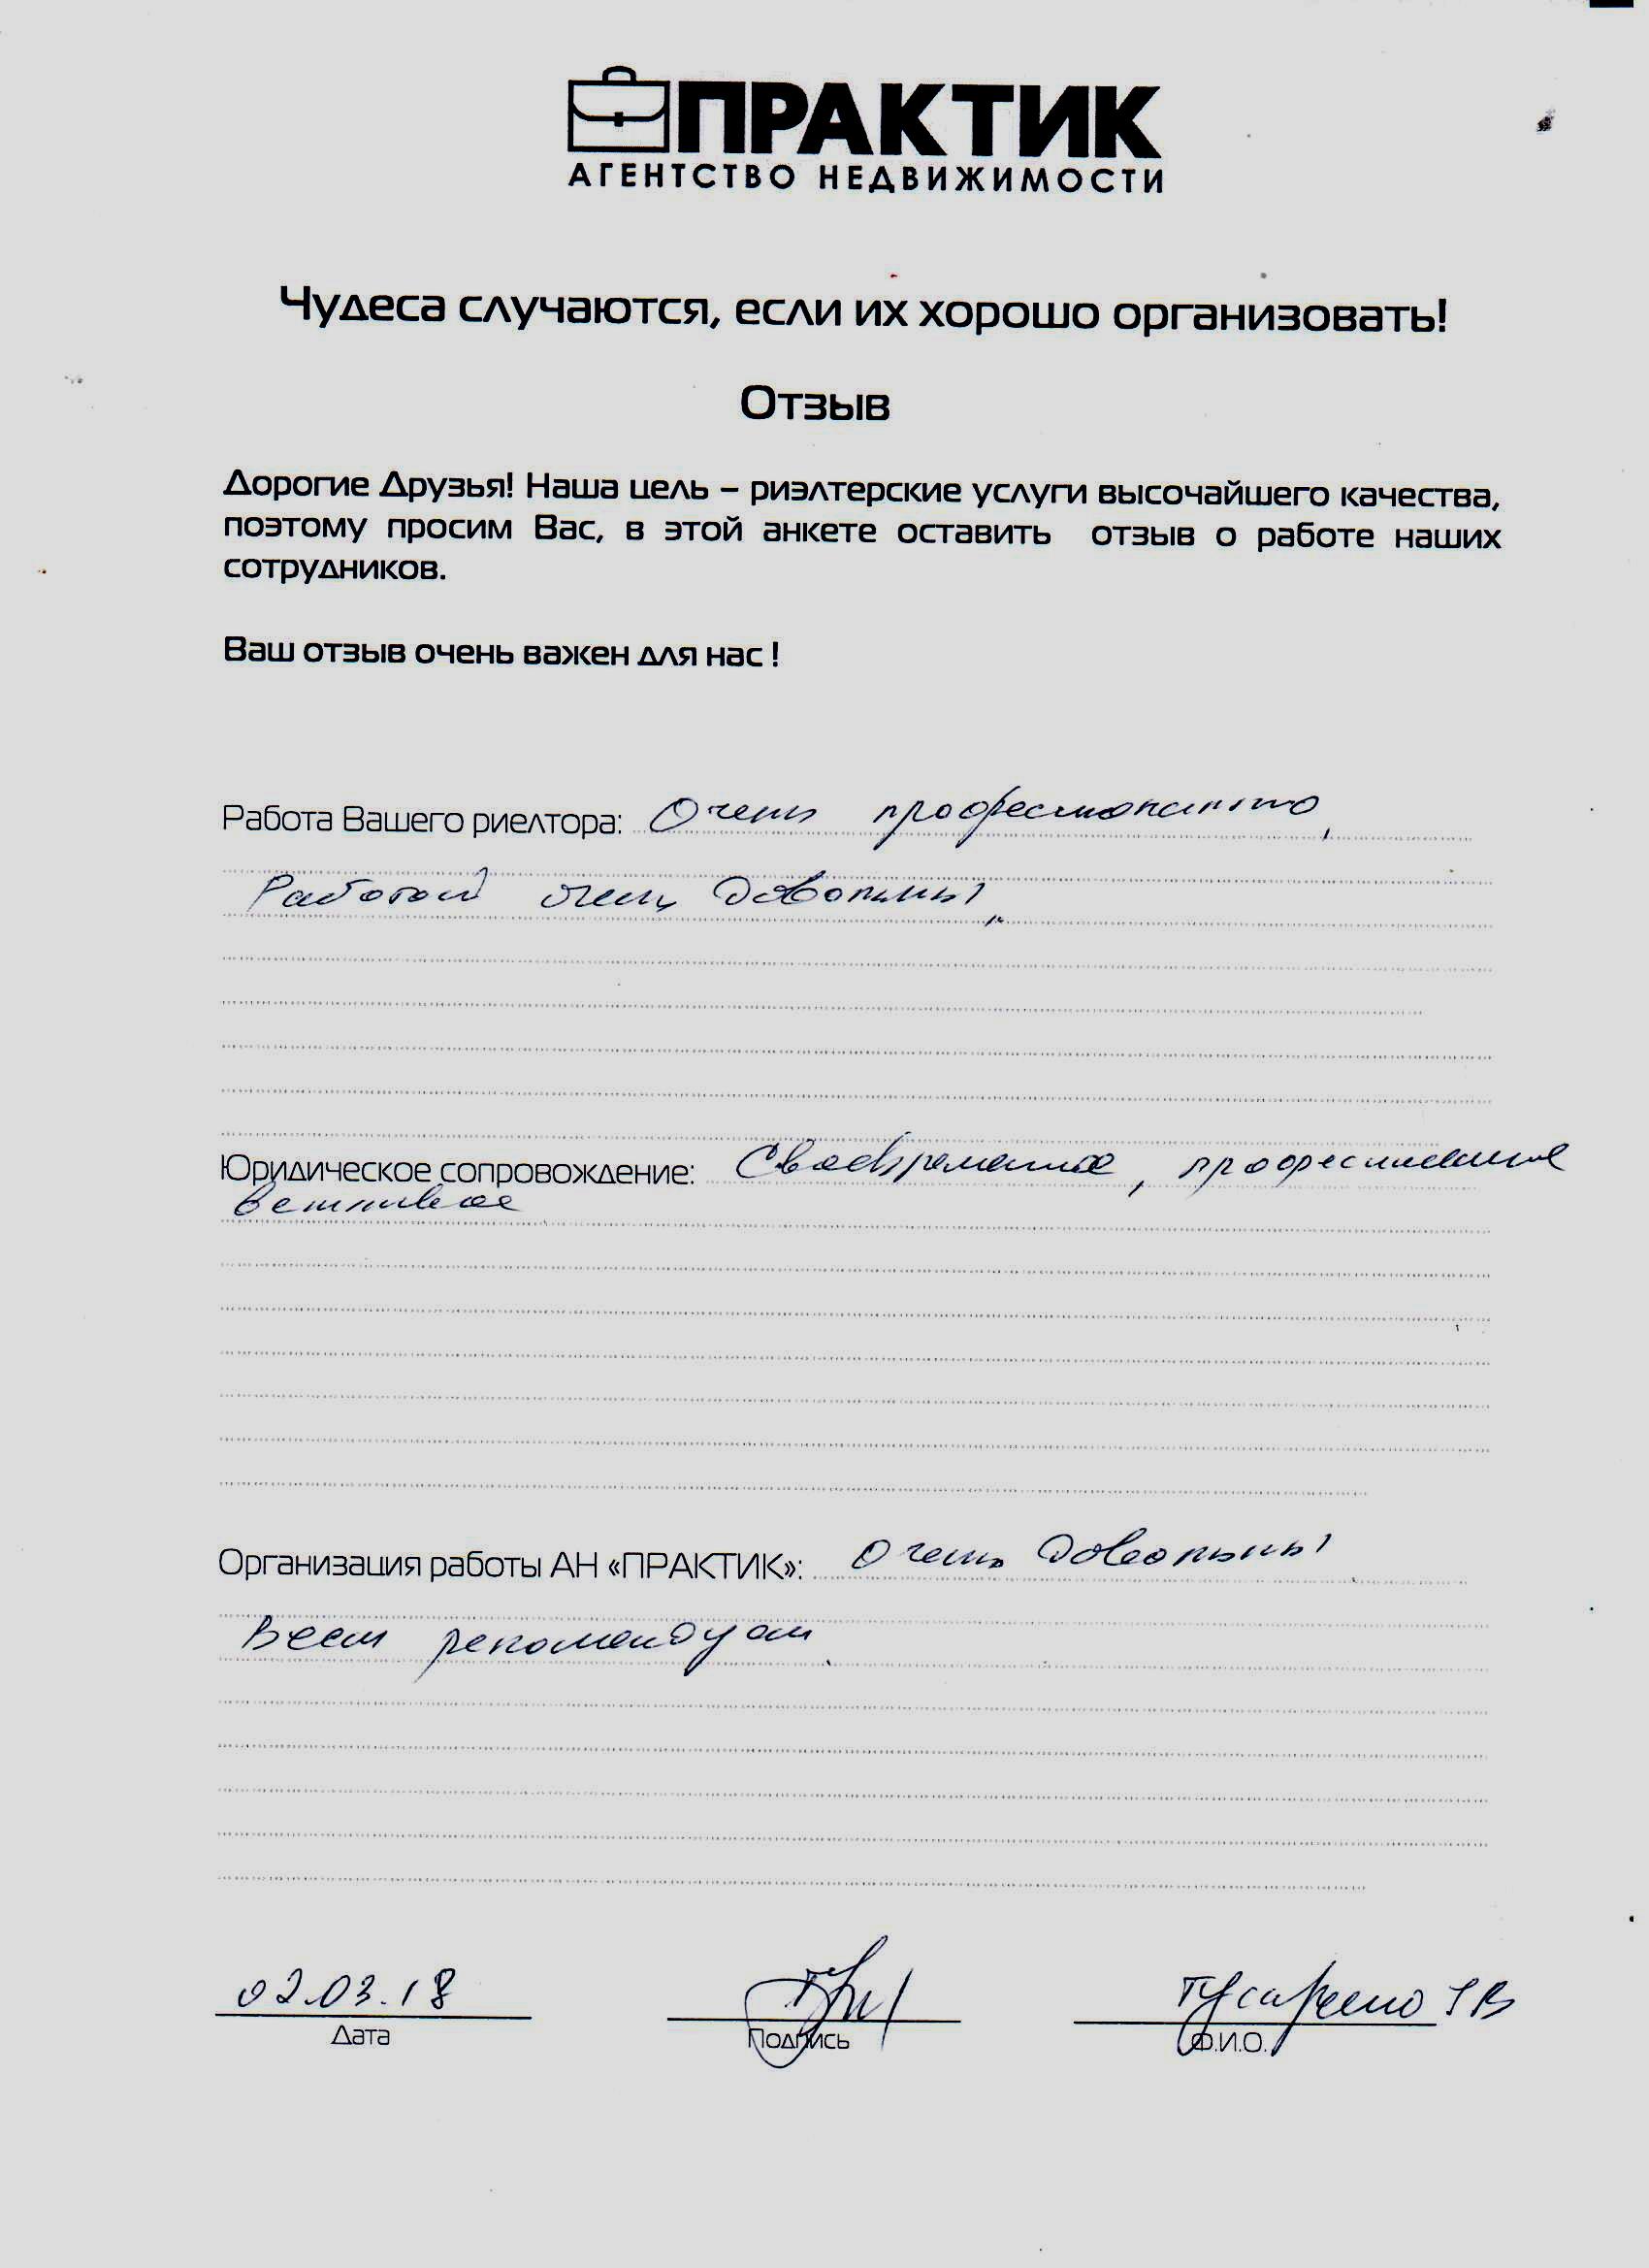 ПРАКТИК
АГЕНТСТВО НЕДВИЖИМОСТИ
Чудеса случаются, если их хорошо организовать!
Отзыв
Дорогие Друзья! Наша цель – риэлтерские услуги высочайшего качества,
поэтому просим Вас, в этой анкете оставить отзыв о работе наших
сотрудников.
Ваш отзыв очень важен для нас !
Работа Вашего риелтора: Очень професионально,
Работой очень довольны.
Юридическое сопровождение: Своевременное, професиональное
вежливое
Организация работы АН «ПРАКТИК»: Очень довольны
Всем рекомендуем.
02.03.18
Дата
Подпись
Ф.И.О.